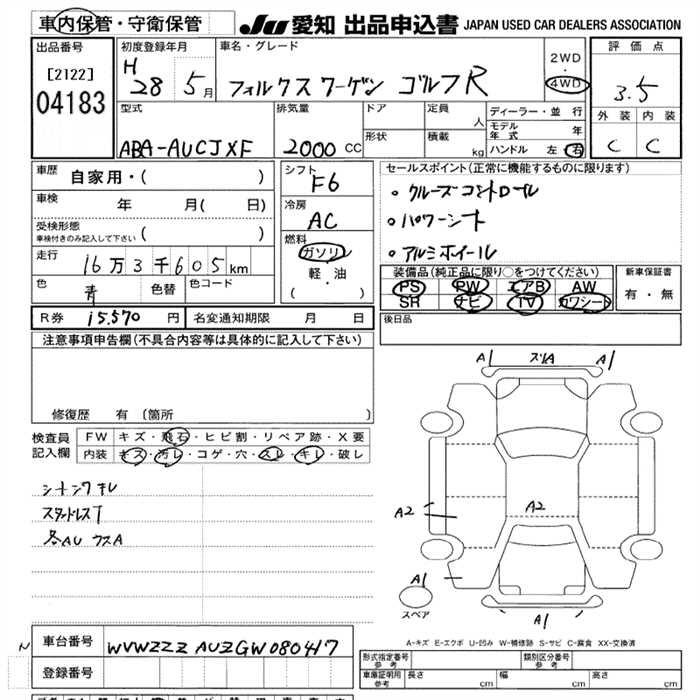 車内保管・守衛保管 JU 愛知 出品申込書 JAPAN USED CAR DEALERS ASSOCIATION
出品番号 初度登録年月 車名・グレード 2WD・4WD 評価点
[2122] H 28 5月 フォルクスワーゲン ゴルフR 3.5
04183
型式 排気量 ドア 定員 人 ディーラー・並行 外装 内装
ABA-AUCJXF 2000 CC 形状 積載 kg モデル年式 年 C C
ハンドル 左 右
車歴 自家用・( ) シフト F6 セールスポイント(正常に機能するものに限ります)
車検 年 月( 日) 冷房 AC 。クルーズコントロール
受検形態 ( ) 。パワーシート
車検付きのみ記入して下さい
走行 16万3千605km 燃料 ガソリ 。アルミホイール
軽・油
( )
色 青 色替 色コード 装備品(純正品に限り○をつけてください) 新車保証書
PS PW エアB AW 有・無
SR ナビ TV カワシート
R券 15,570円 名変通知期限 月 日 後日品
注意事項申告欄(不具合内容等は具体的に記入して下さい)
修復歴 有 [箇所 ]
検査員記入欄 FW キズ・飛石・ヒビ割・リペア跡・X要
内装 キズ・汚レ・コゲ・穴・スレ・キレ・破し
スリA
A1 A1
A2 A2
A1
スペア
A1
A-キズ E-エクボ U-凹み W-補修跡 S-サビ C-腐食 XX-交換済
車台番号 WVWZZZAUZGW080417 形式指定番号 参考 類別区分番号 参考
登録番号 車庫証明用 参考 長さ cm 幅 cm 高さ cm